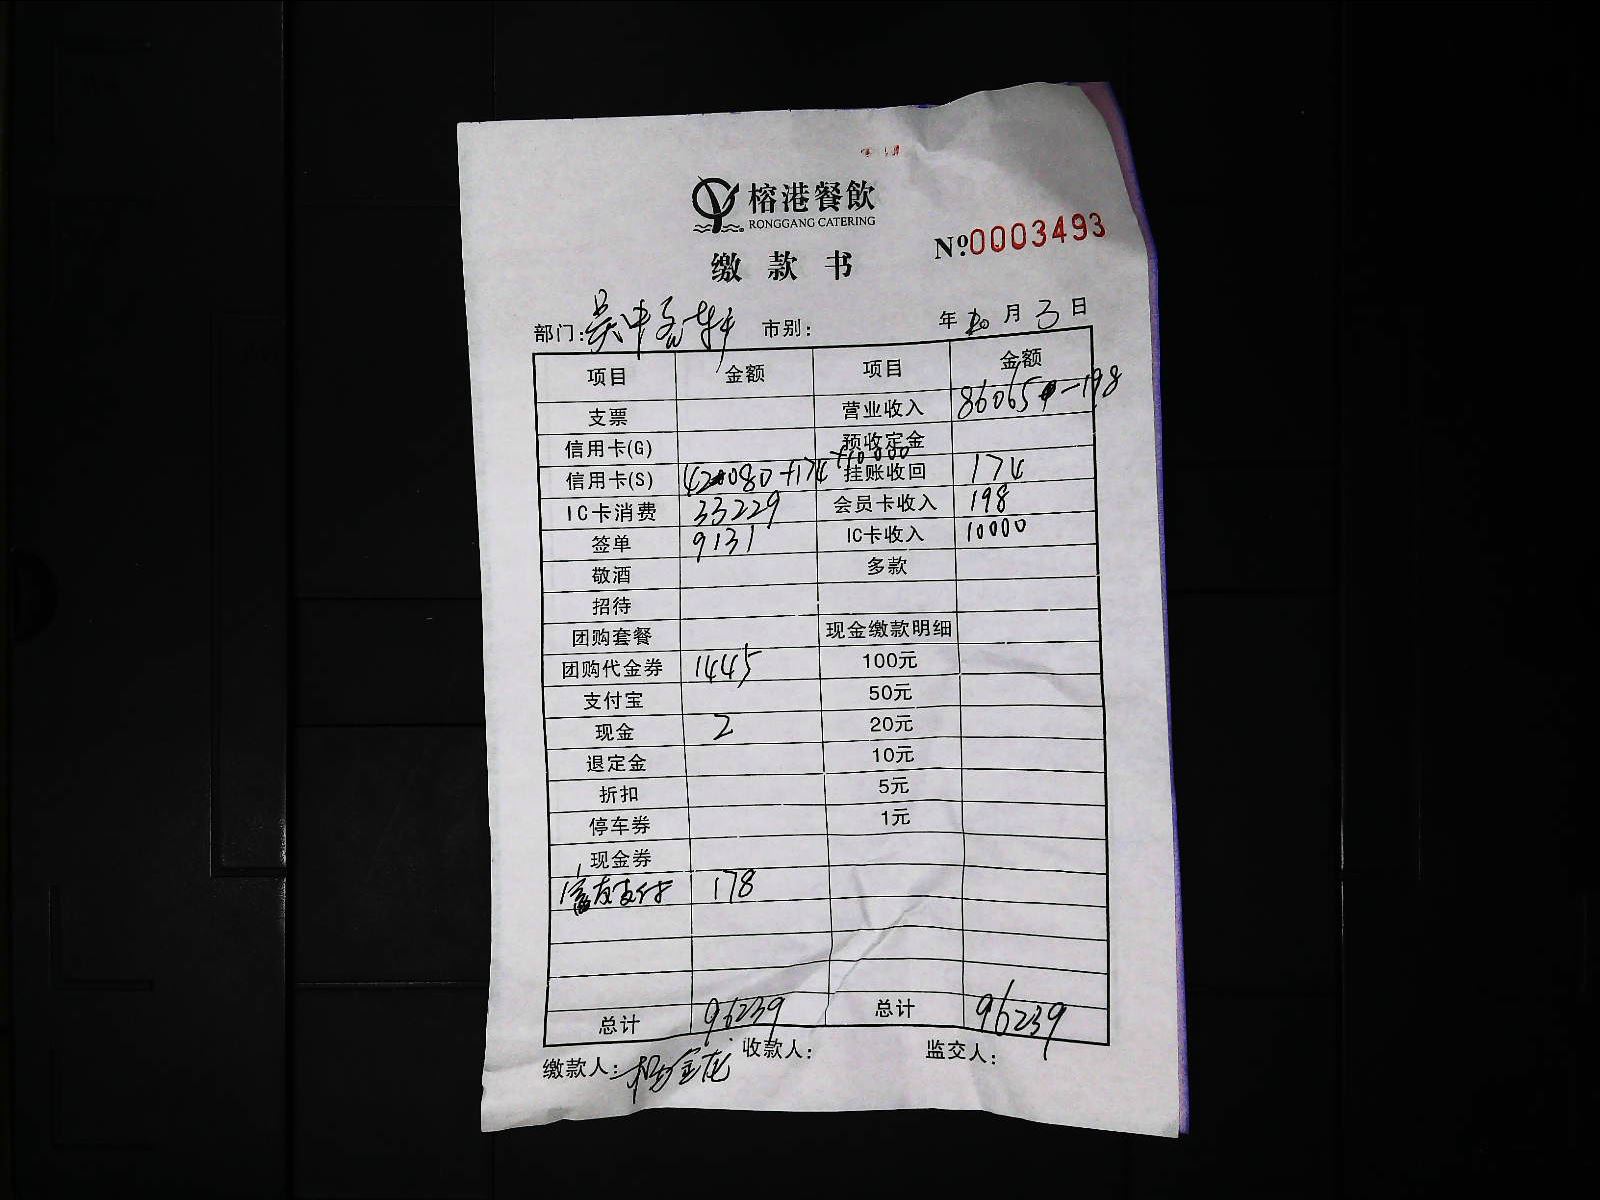 榕港餐飲
RONGGANG CATERING
缴款书
Nº.0003493
部门:吴中 市别: 年10月3日
项目 金额 项目 金额
支票 营业收入 86065-198
信用卡(G) 预收定金
信用卡(S) 42080+174+10000 挂账收回 174
IC卡消费 33229 会员卡收入 198
签单 9131 IC卡收入 10000
敬酒 多款
招待
团购套餐 现金缴款明细
团购代金券 1445 100元
支付宝 50元
现金 2 20元
退定金 10元
折扣 5元
停车券 1元
现金券
富友支付 178
总计 96239 总计 96239
缴款人:杨金龙 收款人: 监交人: